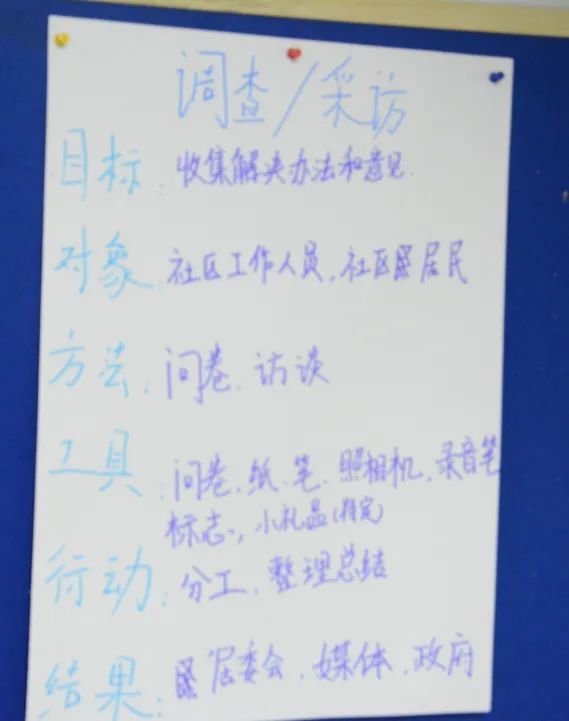 调查/采访
目标：收集解决办法和意见.
对象：社区工作人员、社区居民
方法：问卷、访谈
工具：问卷、纸、笔、照相机、录音笔
标志、，小礼品（待定）
行动：分工、整理总结
结果：居委会、媒体、政府